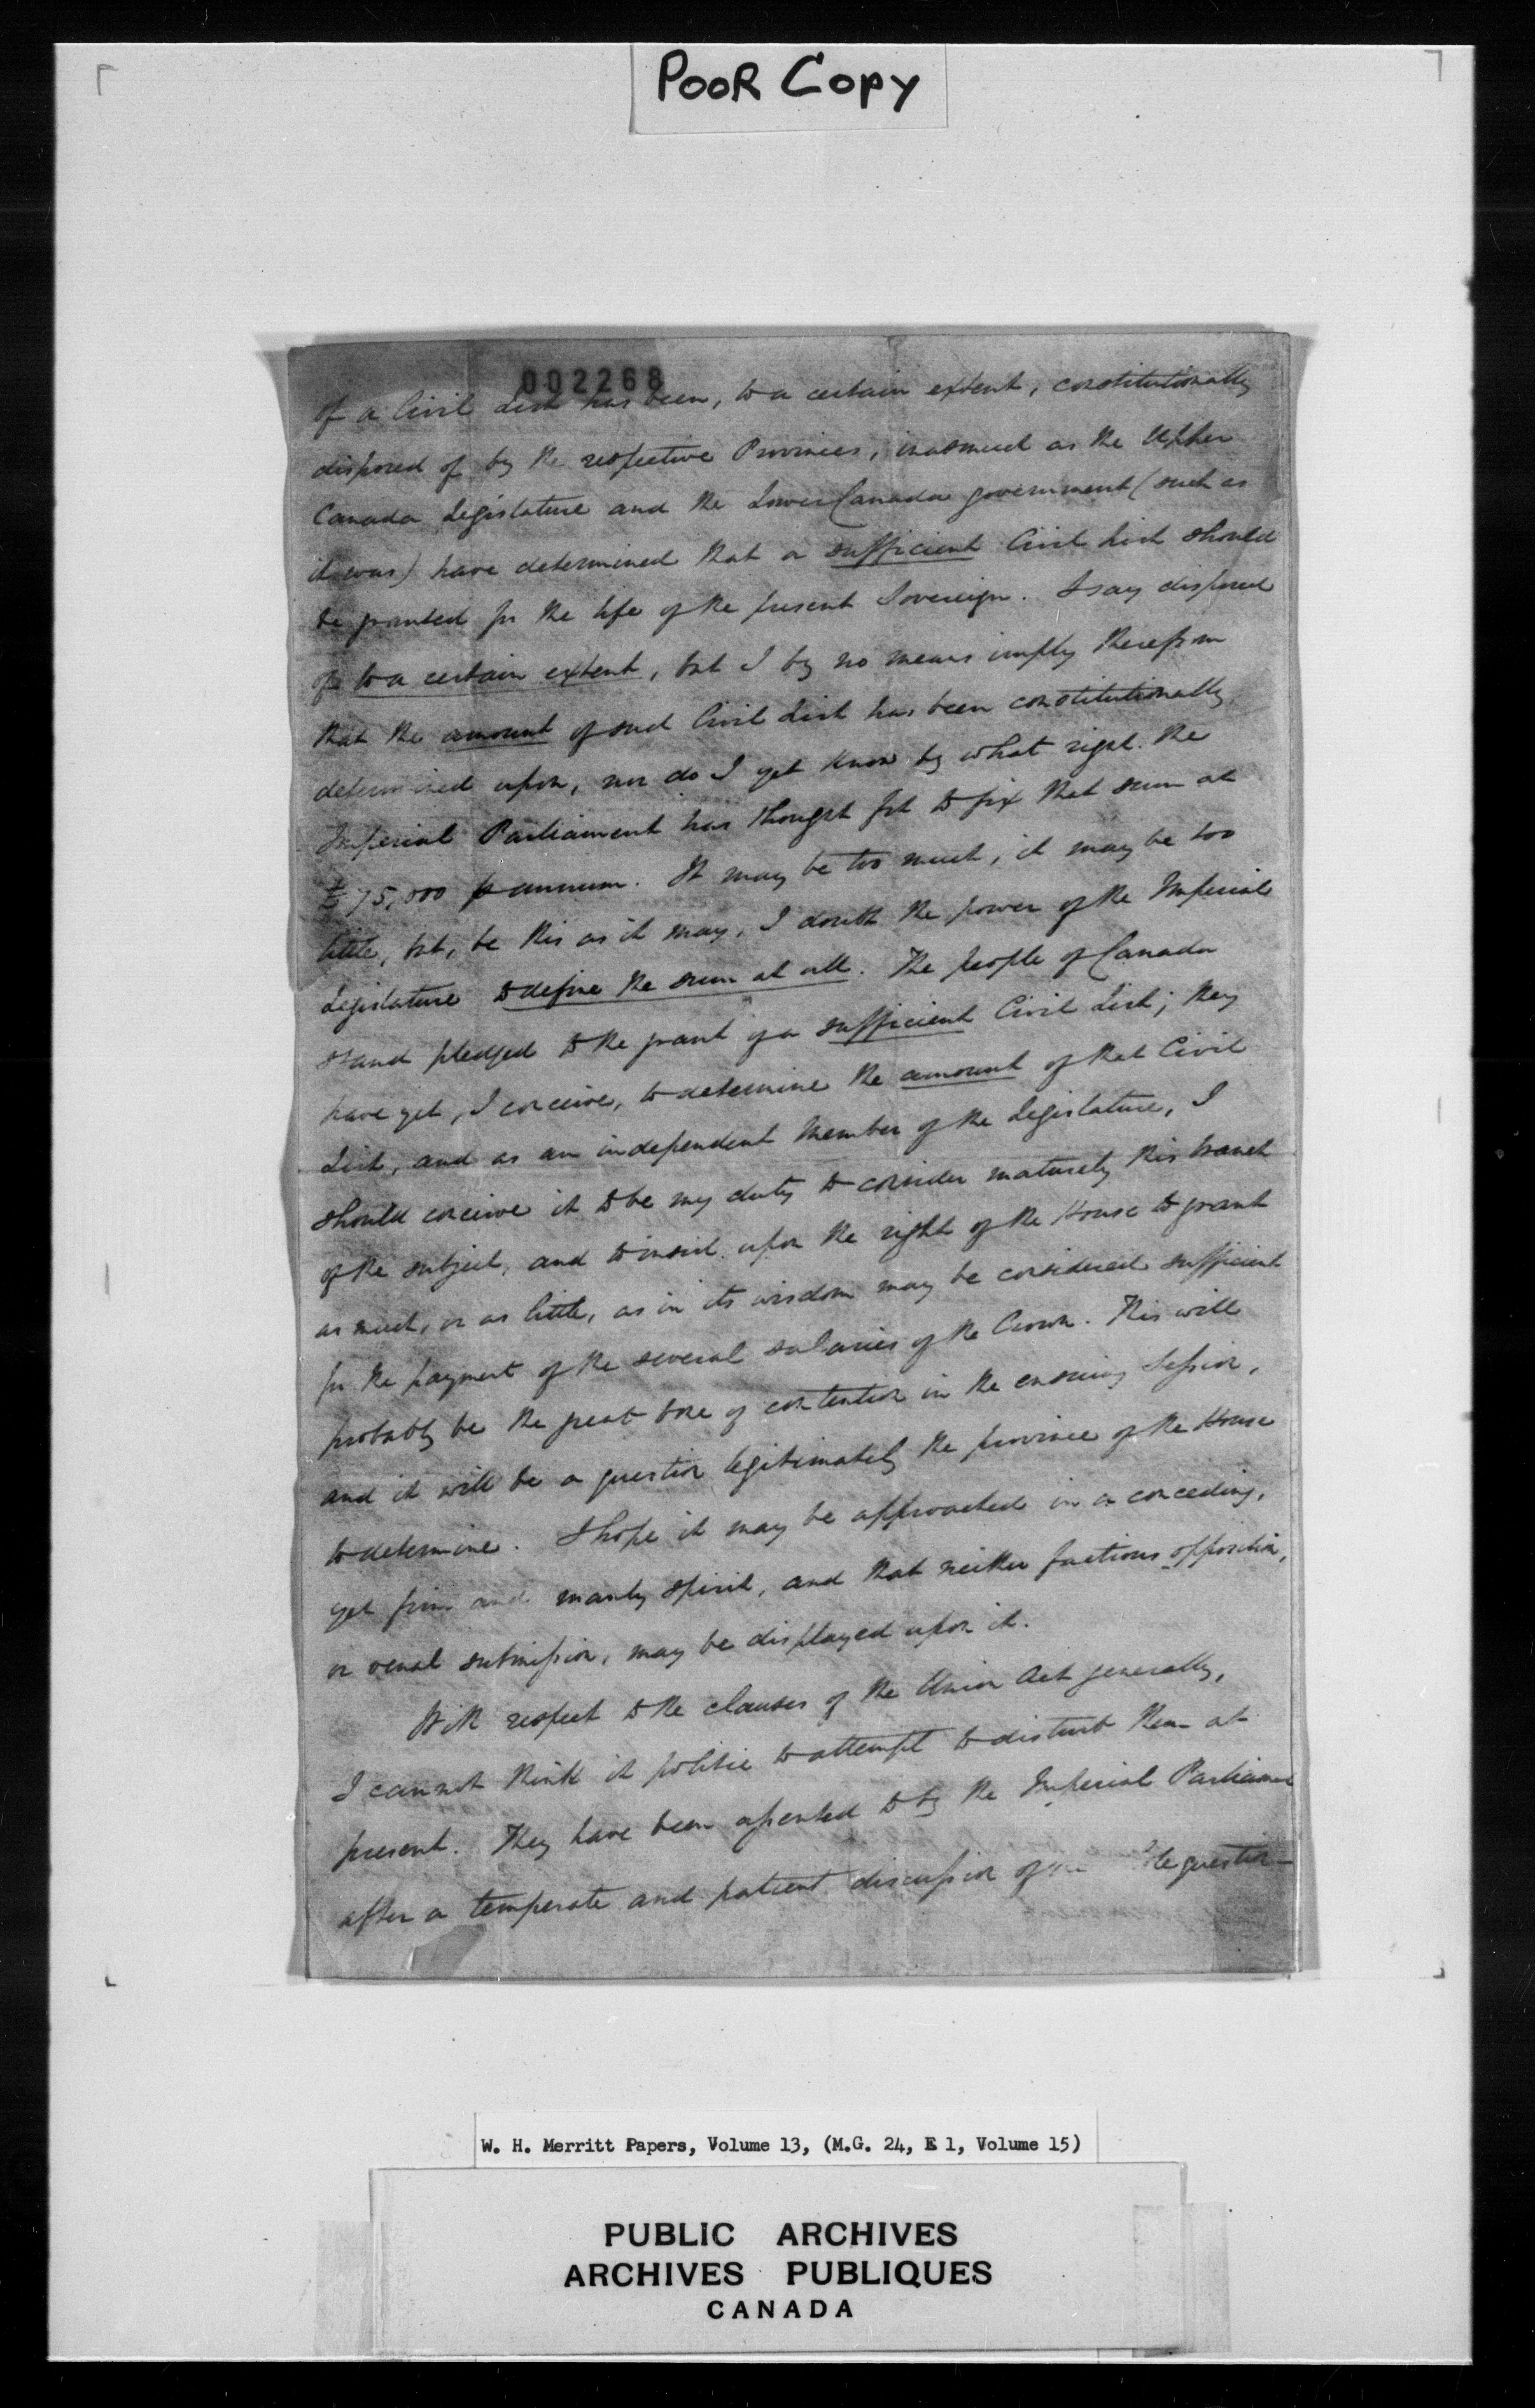 POOR COPY
002268
of a Civil List has been, to a certain extent, constitutionally
disposed of by the respective Provinces, inasmuch as the Upper
Canada Legislature and the Lower Canada government (such as
it was) have determined that a sufficient Civil List should
be granted for the life of the present Sovereign. I say disposed
of to a certain extent, but I by no means imply therefrom
that the amount of such Civil List has been constitutionally
determined upon, nor do I yet know by what right the
Imperial Parliament has thought fit to fix that sum at
£75,000 p annum. It may be too much, it may be too
little, but, be this as it may, I doubt the power of the Imperial
Legislature to define the sum at all. The people of Canada
stand pledged to the grant of a sufficient Civil List; they
have yet, I conceive, to determine the amount of that Civil
List, and as an independent Member of the Legislature, I
should conceive it to be my duty to consider maturely this branch
of the subject, and to insist upon the right of the House to grant
as much, or as little, as in its wisdom may be considered sufficient
for the payment of the several salaries of the Crown. This will
probably be the great bone of contention in the ensuing Session,
and it will be a question legitimately the province of the House
to determine. I hope it may be approached in a conceding,
yet firm and manly spirit, and that neither factious opposition,
or venal submission, may be displayed upon it.
With respect to the clauses of the Union Act generally,
I cannot think it politic to attempt to disturb them at
present. They have been assented to by the Imperial Parliament
after a temperate and patient discussion of question
W. H. Merritt Papers, Volume 13, (M.G. 24, E 1, Volume 15)
PUBLIC ARCHIVES
ARCHIVES PUBLIQUES
CANADA